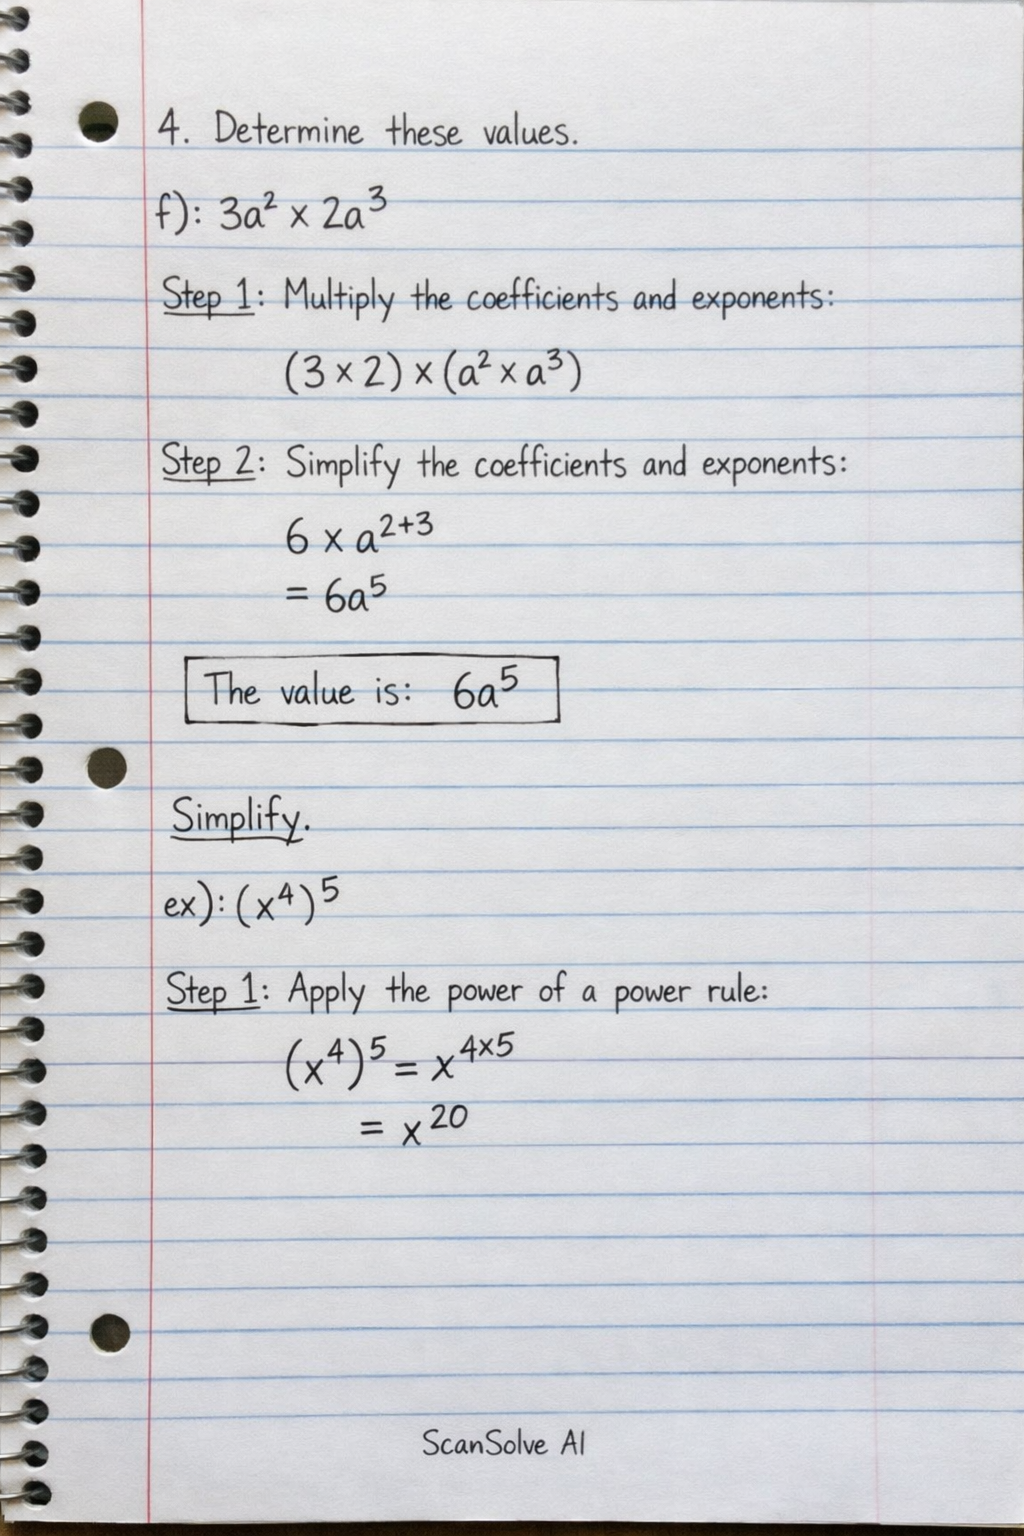 4. Determine these values.
f): 3a² x 2a³
Step 1: Multiply the coefficients and exponents:
(3 x 2) x (a² x a³)
Step 2: Simplify the coefficients and exponents:
6 x a²⁺³
= 6a⁵
The value is: 6a⁵
Simplify.
ex): (x⁴)⁵
Step 1: Apply the power of a power rule:
(x⁴)⁵ = x⁴ˣ⁵
= x²⁰
ScanSolve AI